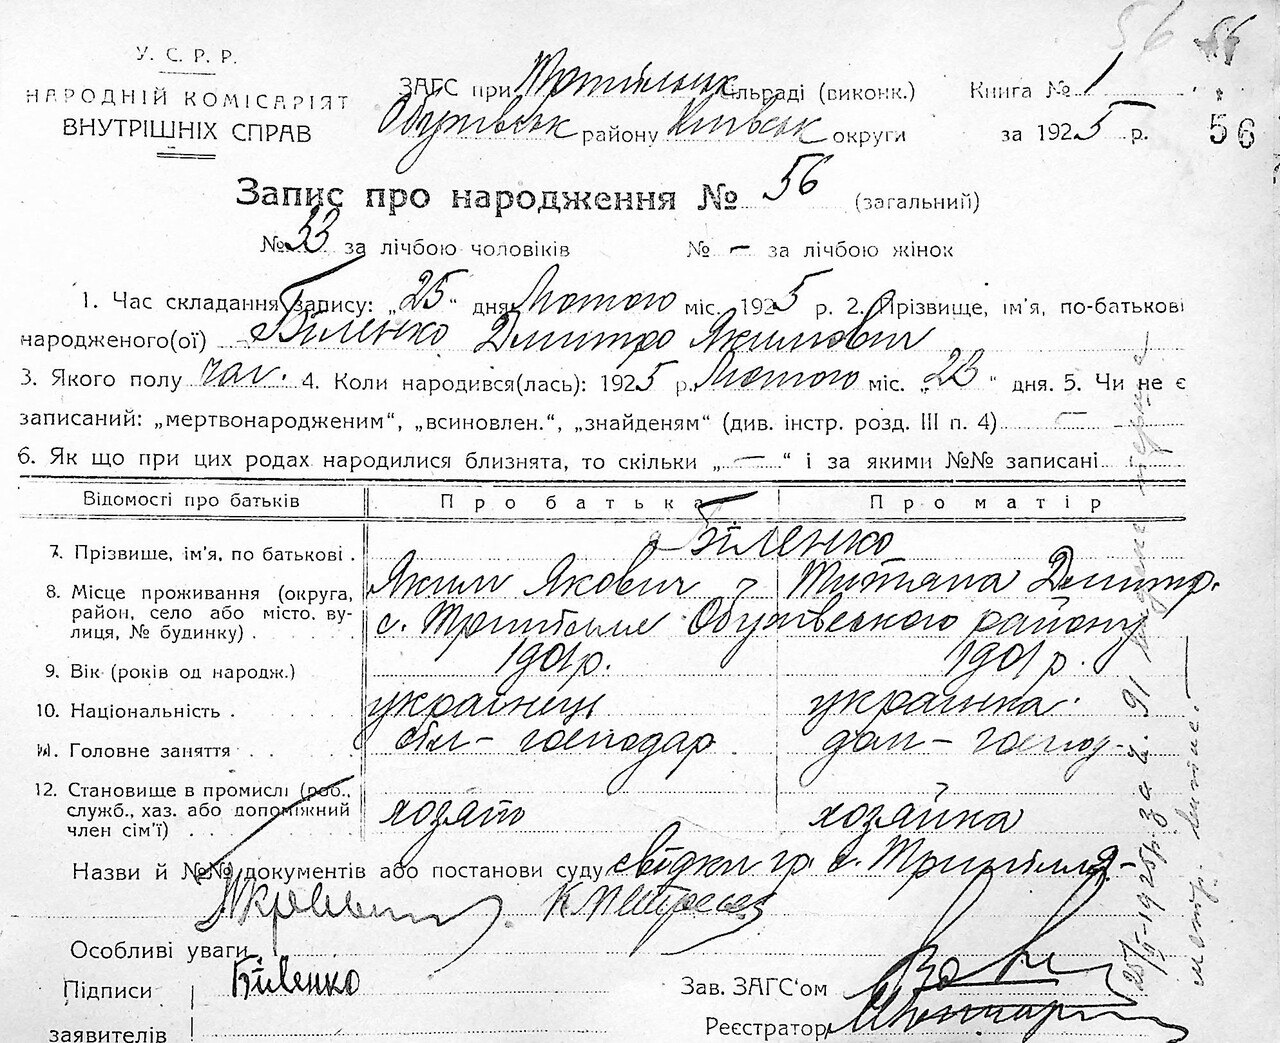 56
У. С. Р. Р.
НАРОДНІЙ КОМІСАРІЯТ
ВНУТРІШНІХ СПРАВ
ЗАГС при Трипільськ сільраді (виконк.)
Обухівськ району Київськ округи
Книга № 1
за 1925 р.
56
Запис про народження № 56 (загальний)
№ 33 за лічбою чоловіків № – за лічбою жінок
1. Час складання запису: „25“ дня Лютого міс. 1925 р. 2. Прізвище, ім'я, по-батькові
народженого(ої) Біленко Дмитро Якимович
3. Якого полу чол. 4. Коли народився(лась): 1925 р. Лютого міс. „23“ дня. 5. Чи не є
записаний: „мертвонародженим“, „всиновлен.“, „знайденям“ (див. інстр. розд. III п. 4) –
6. Як що при цих родах народилися близнята, то скільки „–“ і за якими №№ записані
Відомості про батьків Про батька Про матір
7. Прізвище, ім'я, по батькові . Біленко
Яким Якович Титяна Дмитр.
8. Місце проживання (округа,
район, село або місто, ву-
лиця, № будинку) . с. Трипілля Обухівського району
9. Вік (років од народж.) 1901 р. 1901 р.
10. Національність . українець українка
11. Головне заняття . . хліб – господар дом – господ.
12. Становище в промислі (роб.,
служб., хаз. або допоміжний
член сім'ї) . . хозяїн хозяйка
Назви й №№ документів або постанови суду свідки гр. с. Трипілля –
Особливі уваги
Підписи
заявителів
Біленко
Зав. ЗАГС'ом
Реєстратор
25/II-1925 р. за ч. 91 видане перше
метр. витяг.